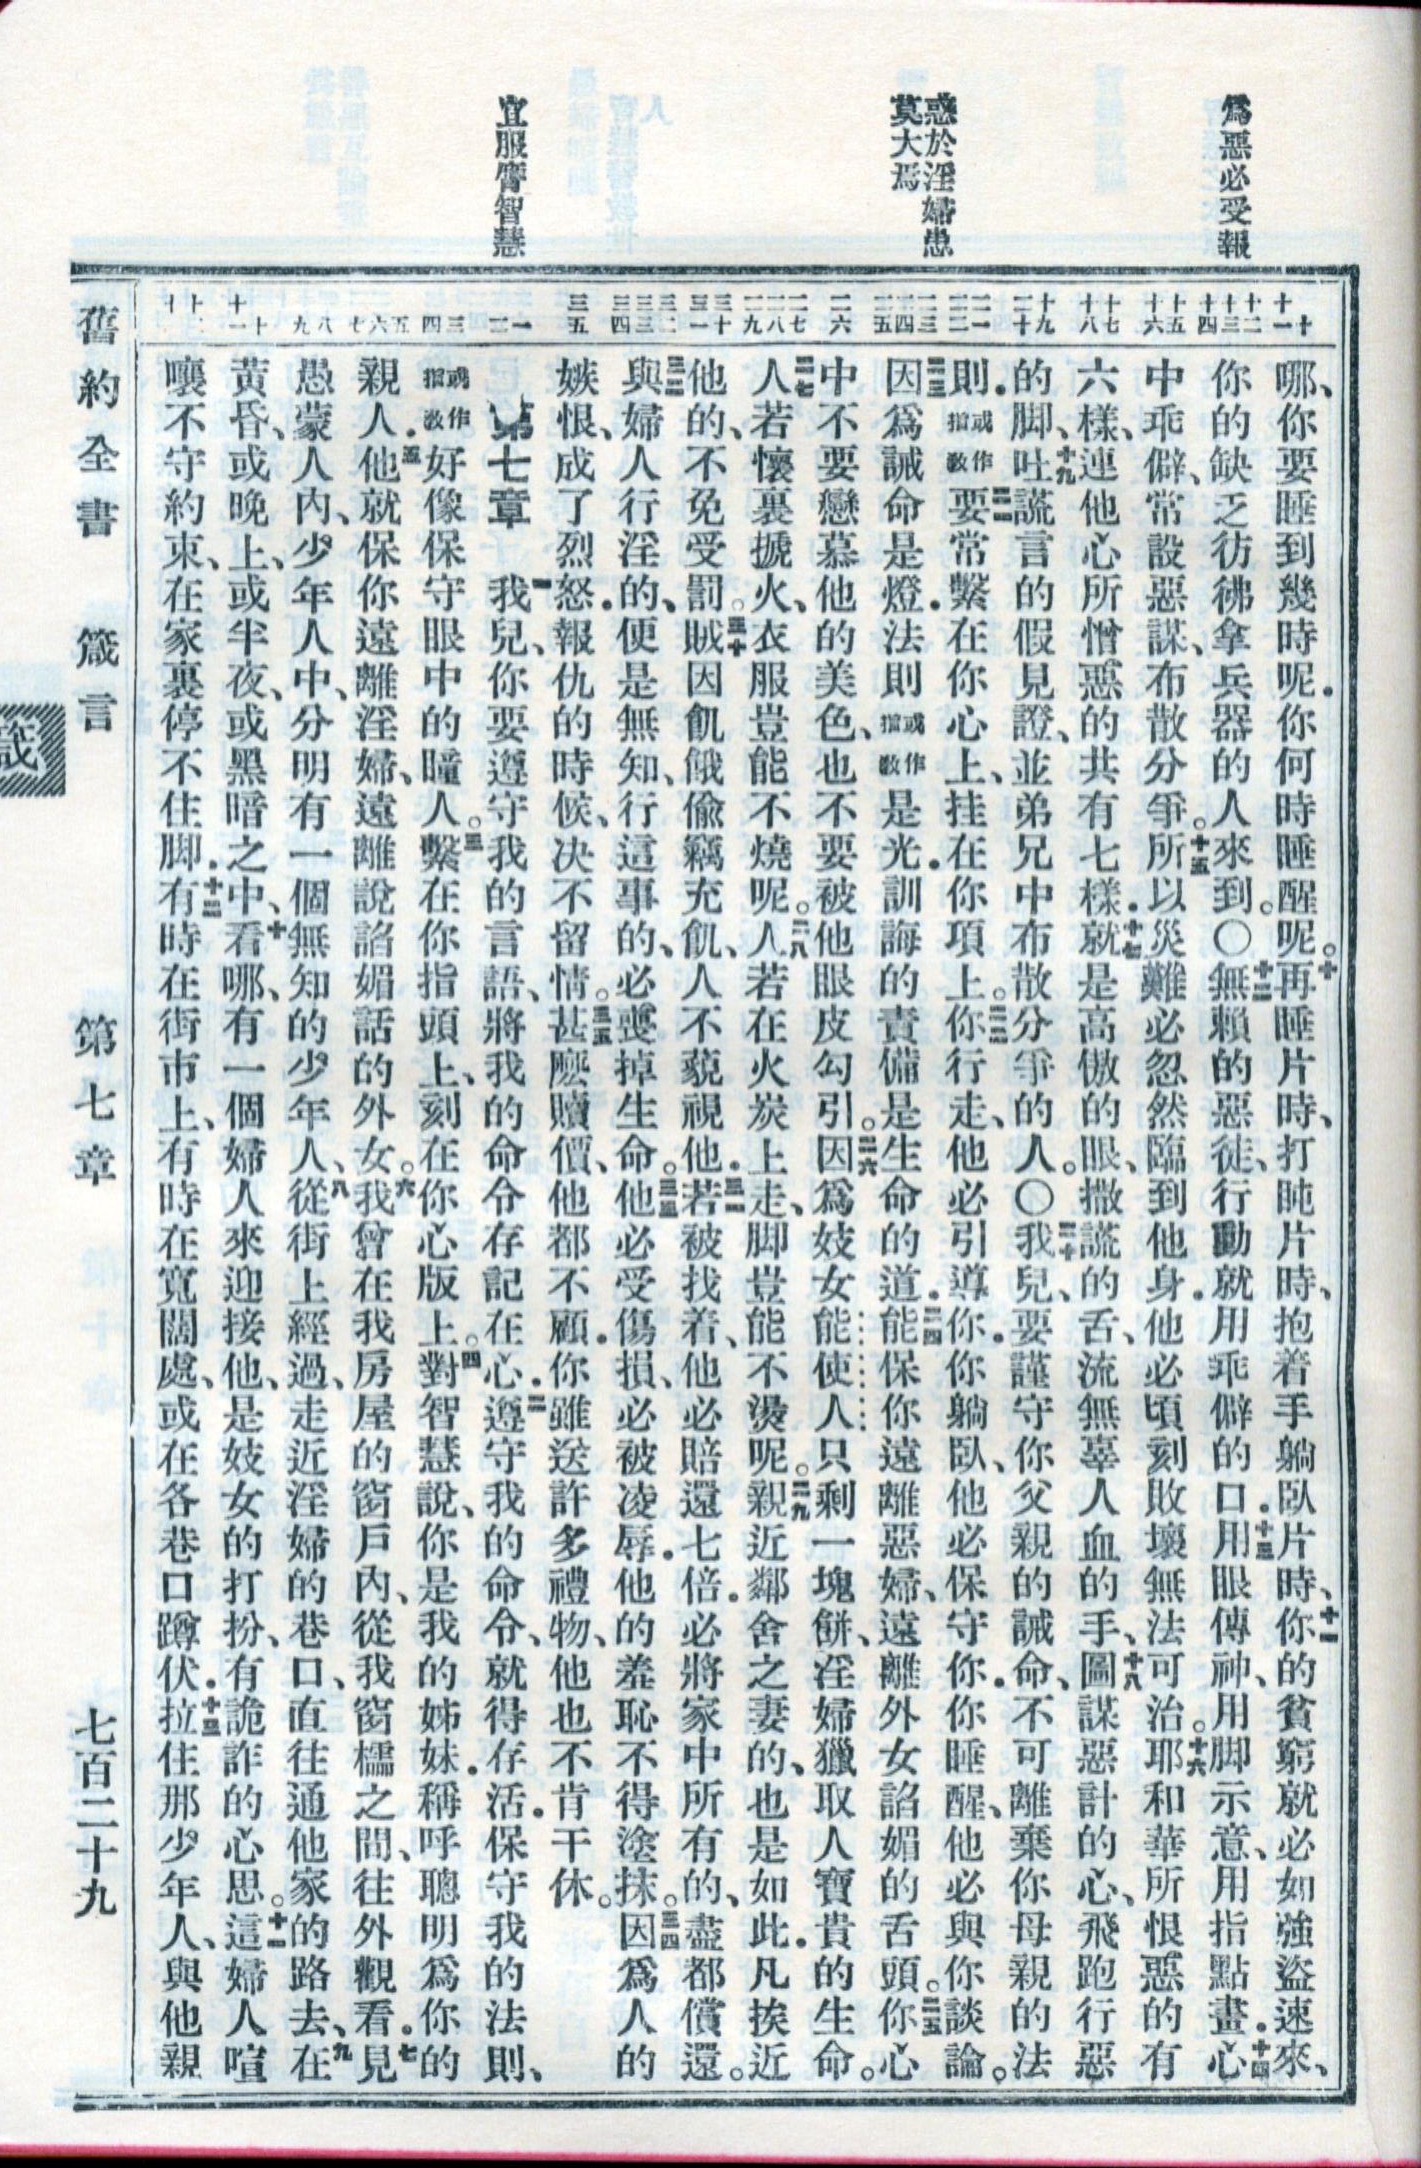 爲惡必受報
惑於淫婦患
莫大焉
宜服膺智慧
哪、你要睡到幾時呢．你何時睡醒呢。十再睡片時、打盹片時、抱着手躺臥片時、十一你的貧窮就必如強盜速來、
你的缺乏彷彿拿兵器的人來到。〇十二無賴的惡徒、行動就用乖僻的口．十三用眼傳神、用脚示意、用指點畫．十四心
中乖僻、常設惡謀、布散分爭。十五所以災難必忽然臨到他身．他必頃刻敗壞無法可治。十六耶和華所恨惡的有
六樣、連他心所憎惡的共有七樣．十七就是高傲的眼、撒謊的舌、流無辜人血的手、十八圖謀惡計的心、飛跑行惡
的脚、十九吐謊言的假見證、並弟兄中布散分爭的人。〇二十我兒、要謹守你父親的誡命、不可離棄你母親的法
則．或作指敎二一要常繫在你心上、挂在你項上。二二你行走、他必引導你．你躺臥、他必保守你．你睡醒、他必與你談論。
二三因爲誡命是燈．法則或作指敎是光．訓誨的責備是生命的道．二四能保你遠離惡婦、遠離外女諂媚的舌頭。二五你心
中不要戀慕他的美色、也不要被他眼皮勾引。二六因爲妓女能使人只剩一塊餅、淫婦獵取人寶貴的生命。
二七人若懷裏搋火、衣服豈能不燒呢。二八人若在火炭上走、脚豈能不燙呢。二九親近鄰舍之妻的、也是如此．凡挨近
他的、不免受罰。三十賊因飢餓偷竊充飢、人不藐視他．三一若被找着、他必賠還七倍．必將家中所有的、盡都償還。
三二與婦人行淫的、便是無知、行這事的、必喪掉生命。三三他必受傷損、必被凌辱．他的羞恥不得塗抹。三四因爲人的
嫉恨、成了烈怒．報仇的時候、决不留情。三五甚麽贖價、他都不顧．你雖送許多禮物、他也不肯干休。
第七章　一我兒、你要遵守我的言語、將我的命令存記在心．二遵守我的命令、就得存活．保守我的法則、
或作指敎好像保守眼中的瞳人。三繫在你指頭上、刻在你心版上。四對智慧說、你是我的姊妹．稱呼聰明爲你的
親人．五他就保你遠離淫婦、遠離說諂媚話的外女。六我曾在我房屋的窗戶內、從我窗櫺之間、往外觀看．七見
愚蒙人內、少年人中、分明有一個無知的少年人、八從街上經過、走近淫婦的巷口、直往通他家的路去、九在
黃昏、或晚上、或半夜、或黑暗之中、十看哪、有一個婦人來迎接他、是妓女的打扮、有詭詐的心思。十一這婦人喧
嚷不守約束、在家裏停不住脚．十二有時在街市上、有時在寬闊處、或在各巷口蹲伏．十三拉住那少年人、與他親
舊約全書　箴言　第七章　七百二十九
箴